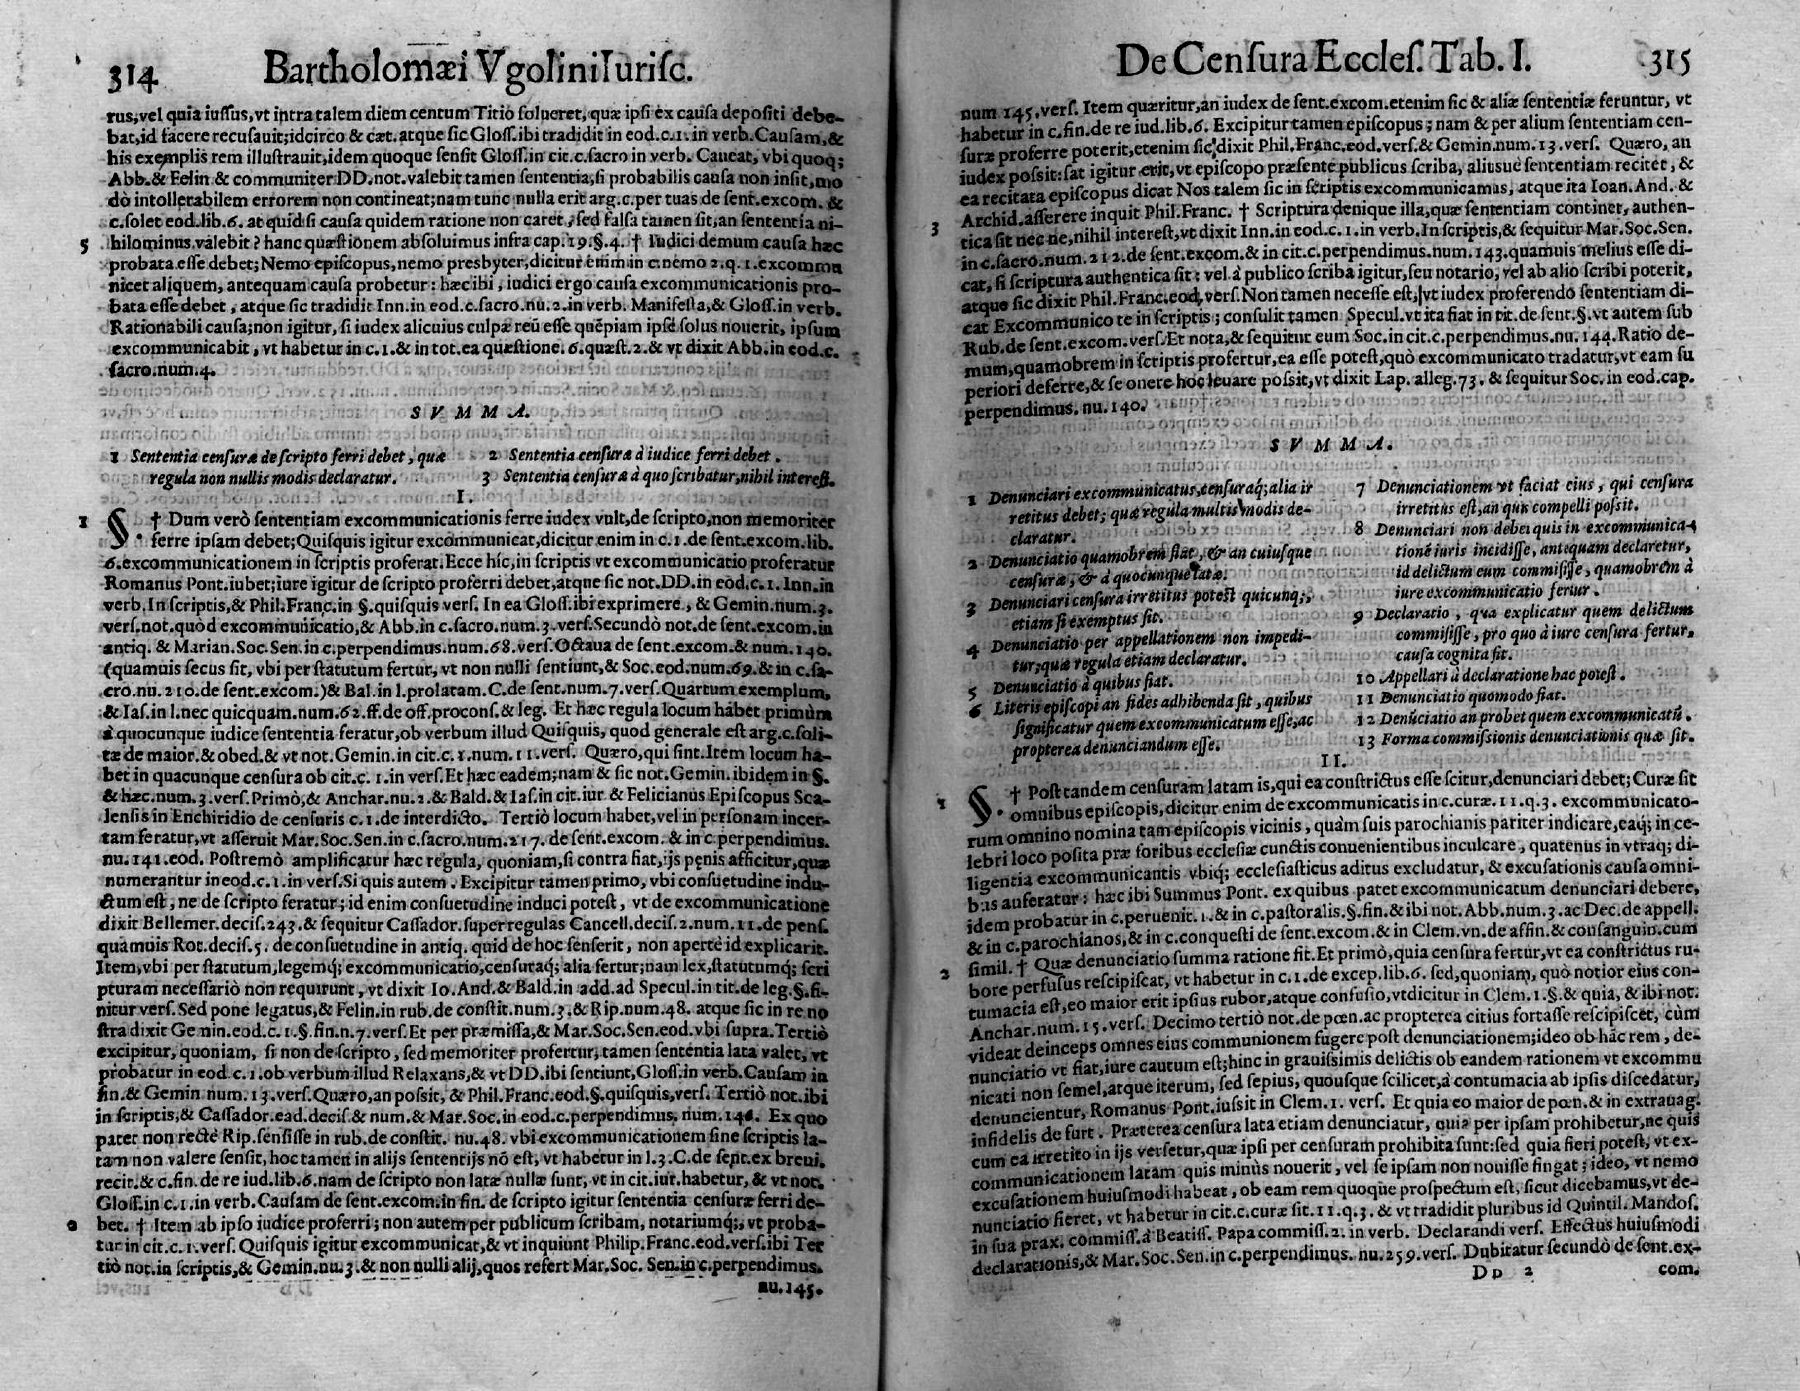 314 Bartholomæi Vgolini Iurisc.
rus, vel quia iussus, vt intra talem diem centum Titio solueret, quæ ipsi ex causa depositi debe-
bat, id facere recusauit; idcirco & cæt. atque sic Gloss. ibi tradidit in eod. c. 1. in verb. Causam, &
his exemplis rem illustrauit, idem quoque sensit Gloss. in cit. c. sacro in verb. Caueat, vbi quoq;
Abb. & Felin & communiter DD. not. valebit tamen sententia, si probabilis causa non insit, mo
dò intollerabilem errorem non contineat; nam tunc nulla erit arg. c. per tuas de sent. excom. &
c. solet eod. lib. 6. at quid si causa quidem ratione non caret, sed falsa tamen sit, an sententia ni-
5 hilominus valebit? hanc quæstionem absoluimus infra cap. 19. §. 4. † Iudici demum causa hæc
probata esse debet; Nemo episcopus, nemo presbyter, dicitur enim in c. nemo 2. q. 1. excommu
nicet aliquem, antequam causa probetur: hæc ibi, iudici ergo causa excommunicationis pro-
bata esse debet, atque sic tradidit Inn. in eod. c. sacro. nu. 2. in verb. Manifesta, & Gloss. in verb.
Rationabili causa; non igitur, si iudex alicuius culpæ reũ esse quẽpiam ipse solus nouerit, ipsum
excommunicabit, vt habetur in c. 1. & in tot. ea quæstione. 6. quæst. 2. & vt dixit Abb. in eod. c.
sacro. num. 4.
SVMMA.
1 Sententia censuræ de scripto ferri debet, quæ
regula non nullis modis declaratur.
2 Sententia censuræ à iudice ferri debet.
3 Sententia censuræ à quo scribatur, nihil interest.
I.
1 §. † Dum verò sententiam excommunicationis ferre iudex vult, de scripto, non memoriter
ferre ipsam debet; Quisquis igitur excommunicat, dicitur enim in c. 1. de sent. excom. lib.
6. excommunicationem in scriptis proferat. Ecce híc, in scriptis vt excommunicatio proferatur
Romanus Pont. iubet; iure igitur de scripto proferri debet, atque sic not. DD. in eod. c. 1. Inn. in
verb. In scriptis, & Phil. Franc. in §. quisquis vers. In ea Gloss. ibi exprimere, & Gemin. num. 3.
vers. not. quòd excommunicatio, & Abb. in c. sacro. num. 3. vers. Secundò not. de sent. excom. in
antiq. & Marian. Soc. Sen. in c. perpendimus. num. 68. vers. Octaua de sent. excom. & num. 140.
(quamuis secus sit, vbi per statutum fertur, vt non nulli sentiunt, & Soc. eod. num. 69. & in c. sa-
cro. nu. 210. de sent. excom.) & Bal. in l. prolatam. C. de sent. num. 7. vers. Quartum exemplum,
& Ias. in l. nec quicquam. num. 62. ff. de off. procons. & leg. Et hæc regula locum habet primùm
à quocunque iudice sententia feratur, ob verbum illud Quisquis, quod generale est arg. c. soli-
tæ de maior. & obed. & vt not. Gemin. in cit. c. 1. num. 11. vers. Quæro, qui sint. Item locum ha-
bet in quacunque censura ob cit. c. 1. in vers. Et hæc eadem; nam & sic not. Gemin. ibidem in §.
& hæc. num. 3. vers. Primò, & Anchar. nu. 2. & Bald. & Ias. in cit. iur. & Felicianus Episcopus Sca-
lensis in Enchiridio de censuris c. 1. de interdicto. Tertiò locum habet, vel in personam incer-
tam feratur, vt asseruit Mar. Soc. Sen. in c. sacro. num. 217. de sent. excom. & in c. perpendimus.
nu. 141. eod. Postremò amplificatur hæc regula, quoniam, si contra fiat, ijs pœnis afficitur, quæ
numerantur in eod. c. 1. in vers. Si quis autem. Excipitur tamen primo, vbi consuetudine indu-
ctum est, ne de scripto feratur; id enim consuetudine induci potest, vt de excommunicatione
dixit Bellemer. decis. 243. & sequitur Cassador. super regulas Cancell. decis. 2. num. 11. de pens.
quamuis Rot. decis. 5. de consuetudine in antiq. quid de hoc senserit, non apertè id explicarit.
Item, vbi per statutum, legemq; excommunicatio, censuraq; alia fertur; nam lex, statutumq; scri
pturam necessariò non requirunt, vt dixit Io. And. & Bald. in add. ad Specul. in tit. de leg. §. fi-
nitur vers. Sed pone legatus, & Felin. in rub. de constit. num. 3. & Rip. num. 48. atque sic in re no
stra dixit Gemin. eod. c. 1. §. fin. n. 7. vers. Et per præmissa, & Mar. Soc. Sen. eod. vbi supra. Tertiò
excipitur, quoniam, si non de scripto, sed memoriter profertur, tamen sententia lata valet, vt
probatur in eod. c. 1. ob verbum illud Relaxans, & vt DD. ibi sentiunt, Gloss. in verb. Causam in
fin. & Gemin num. 13. vers. Quæro, an possit, & Phil. Franc. eod. §. quisquis, vers. Tertiò not. ibi
in scriptis, & Cassador. ead. decis. & num. & Mar. Soc. in eod. c. perpendimus, num. 146. Ex quo
patet non rectè Rip. sensisse in rub. de constit. nu. 48. vbi excommunicationem sine scriptis la-
tam non valere sensit, hoc tamen in alijs sententijs nõ est, vt habetur in l. 3. C. de sent. ex breui.
recit. & c. fin. de re iud. lib. 6. nam de scripto non latæ nullæ sunt, vt in cit. iur. habetur, & vt not.
Gloss. in c. 1. in verb. Causam de sent. excom. in fin. de scripto igitur sententia censuræ ferri de-
2 bet. † Item ab ipso iudice proferri; non autem per publicum scribam, notariumq;, vt proba-
tur in cit. c. 1. vers. Quisquis igitur excommunicat, & vt inquiunt Philip. Franc. eod. vers. ibi Ter
tiò not. in scriptis, & Gemin. nu. 3. & non nulli alij, quos refert Mar. Soc. Sen. in c. perpendimus.
nu. 145.
De Censura Eccles. Tab. I. 315
num 145. vers. Item quæritur, an iudex de sent. excom. etenim sic & aliæ sententiæ feruntur, vt
habetur in c. fin. de re iud. lib. 6. Excipitur tamen episcopus; nam & per alium sententiam cen-
suræ proferre poterit, etenim sic dixit Phil. Franc. eod. vers. & Gemin. num. 13. vers. Quæro, an
iudex possit: sat igitur erit, vt episcopo præsente publicus scriba, aliusue sententiam recitet, &
ea recitata episcopus dicat Nos talem sic in scriptis excommunicamus, atque ita Ioan. And. &
Archid. asserere inquit Phil. Franc. † Scriptura denique illa, quæ sententiam continet, authen-
3 tica sit nec ne, nihil interest, vt dixit Inn. in eod. c. 1. in verb. In scriptis, & sequitur Mar. Soc. Sen.
in c. sacro. num. 212. de sent. excom. & in cit. c. perpendimus. num. 143. quamuis melius esse di-
cat, si scriptura authentica sit: vel à publico scriba igitur, seu notario, vel ab alio scribi poterit,
atque sic dixit Phil. Franc. eod. vers. Non tamen necesse est, vt iudex proferendo sententiam di-
cat Excommunico te in scriptis; consulit tamen Specul. vt ita fiat in tit. de sent. §. vt autem sub
Rub. de sent. excom. vers. Et nota, & sequitur eum Soc. in cit. c. perpendimus. nu. 144. Ratio de-
mum, quamobrem in scriptis profertur, ea esse potest, quò excommunicato tradatur, vt eam su
periori deferre, & se onere hoc leuare possit, vt dixit Lap. alleg. 73. & sequitur Soc. in eod. cap.
perpendimus. nu. 140.
SVMMA.
1 Denunciari excommunicatus, censuraq; alia ir
retitus debet; quæ regula multis modis de-
claratur.
2 Denunciatio quamobrem fiat, & an cuiusque
censuræ, & à quocunque latæ.
3 Denunciari censura irretitus potest quicunq;,
etiam si exemptus sit.
4 Denunciatio per appellationem non impedi-
tur; quæ regula etiam declaratur.
5 Denunciatio à quibus fiat.
6 Literis episcopi an fides adhibenda sit, quibus
significatur quem excommunicatum esse, ac
propterea denunciandum esse.
7 Denunciationem vt faciat eius, qui censura
irretitus est, an quis compelli possit.
8 Denunciari non debet quis in excommunica-
tionẽ iuris incidisse, antequam declaretur,
id delictum eum commisisse, quamobrem à
iure excommunicatio fertur.
9 Declaratio, qua explicatur quem delictum
commisisse, pro quo à iure censura fertur,
causa cognita sit.
10 Appellari à declaratione hac potest.
11 Denunciatio quomodo fiat.
12 Denũciatio an probet quem excommunicatũ.
13 Forma commissionis denunciationis quæ sit.
II.
1 §. † Post tandem censuram latam is, qui ea constrictus esse scitur, denunciari debet; Curæ sit
omnibus episcopis, dicitur enim de excommunicatis in c. curæ. 11. q. 3. excommunicato-
rum omnino nomina tam episcopis vicinis, quàm suis parochianis pariter indicare, eaq; in ce-
lebri loco posita præ foribus ecclesiæ cunctis conuenientibus inculcare, quatenus in vtraq; di-
ligentia excommunicantis vbiq; ecclesiasticus aditus excludatur, & excusationis causa omni-
bus auferatur: hæc ibi Summus Pont. ex quibus patet excommunicatum denunciari debere,
idem probatur in c. peruenit. 1. & in c. pastoralis. §. fin. & ibi not. Abb. num. 3. ac Dec. de appell.
& in c. parochianos, & in c. conquesti de sent. excom. & in Clem. vn. de affin. & consanguin. cum
2 simil. † Quæ denunciatio summa ratione fit. Et primò, quia censura fertur, vt ea constrictus ru-
bore perfusus rescipiscat, vt habetur in c. 1. de excep. lib. 6. sed, quoniam, quò notior eius con-
tumacia est, eo maior erit ipsius rubor, atque confusio, vt dicitur in Clem. 1. §. & quia, & ibi not.
Anchar. num. 15. vers. Decimo tertiò not. de pœn. ac propterea citius fortasse rescipiscet, cùm
videat deinceps omnes eius communionem fugere post denunciationem; ideo ob hãc rem, de-
nunciatio vt fiat, iure cautum est; hinc in grauissimis delictis ob eandem rationem vt excommu
nicati non semel, atque iterum, sed sepius, quousque scilicet, à contumacia ab ipsis discedatur,
denuncientur, Romanus Pont. iussit in Clem. 1. vers. Et quia eo maior de pœn. & in extrauag.
infidelis de furt. Præterea censura lata etiam denunciatur, quia per ipsam prohibetur, ne quis
cum ea irretito in ijs versetur, quæ ipsi per censuram prohibita sunt: sed quia fieri potest, vt ex-
communicationem latam quis minùs nouerit, vel se ipsam non nouisse fingat; ideo, vt nemo
excusationem huiusmodi habeat, ob eam rem quoque prospectum est, sicut dicebamus, vt de-
nunciatio fieret, vt habetur in cit. c. curæ sit. 11. q. 3. & vt tradidit pluribus id Quintil. Mandos.
in sua prax. commiss. à Beatiss. Papa commiss. 2. in verb. Declarandi vers. Effectus huiusmodi
declarationis, & Mar. Soc. Sen. in c. perpendimus. nu. 259. vers. Dubitatur secundò de sent. ex-
Dd 2 com.